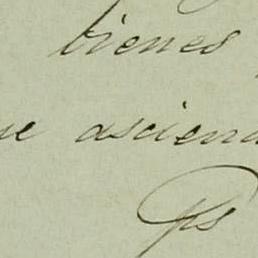 bienes
ue asciend
Ps